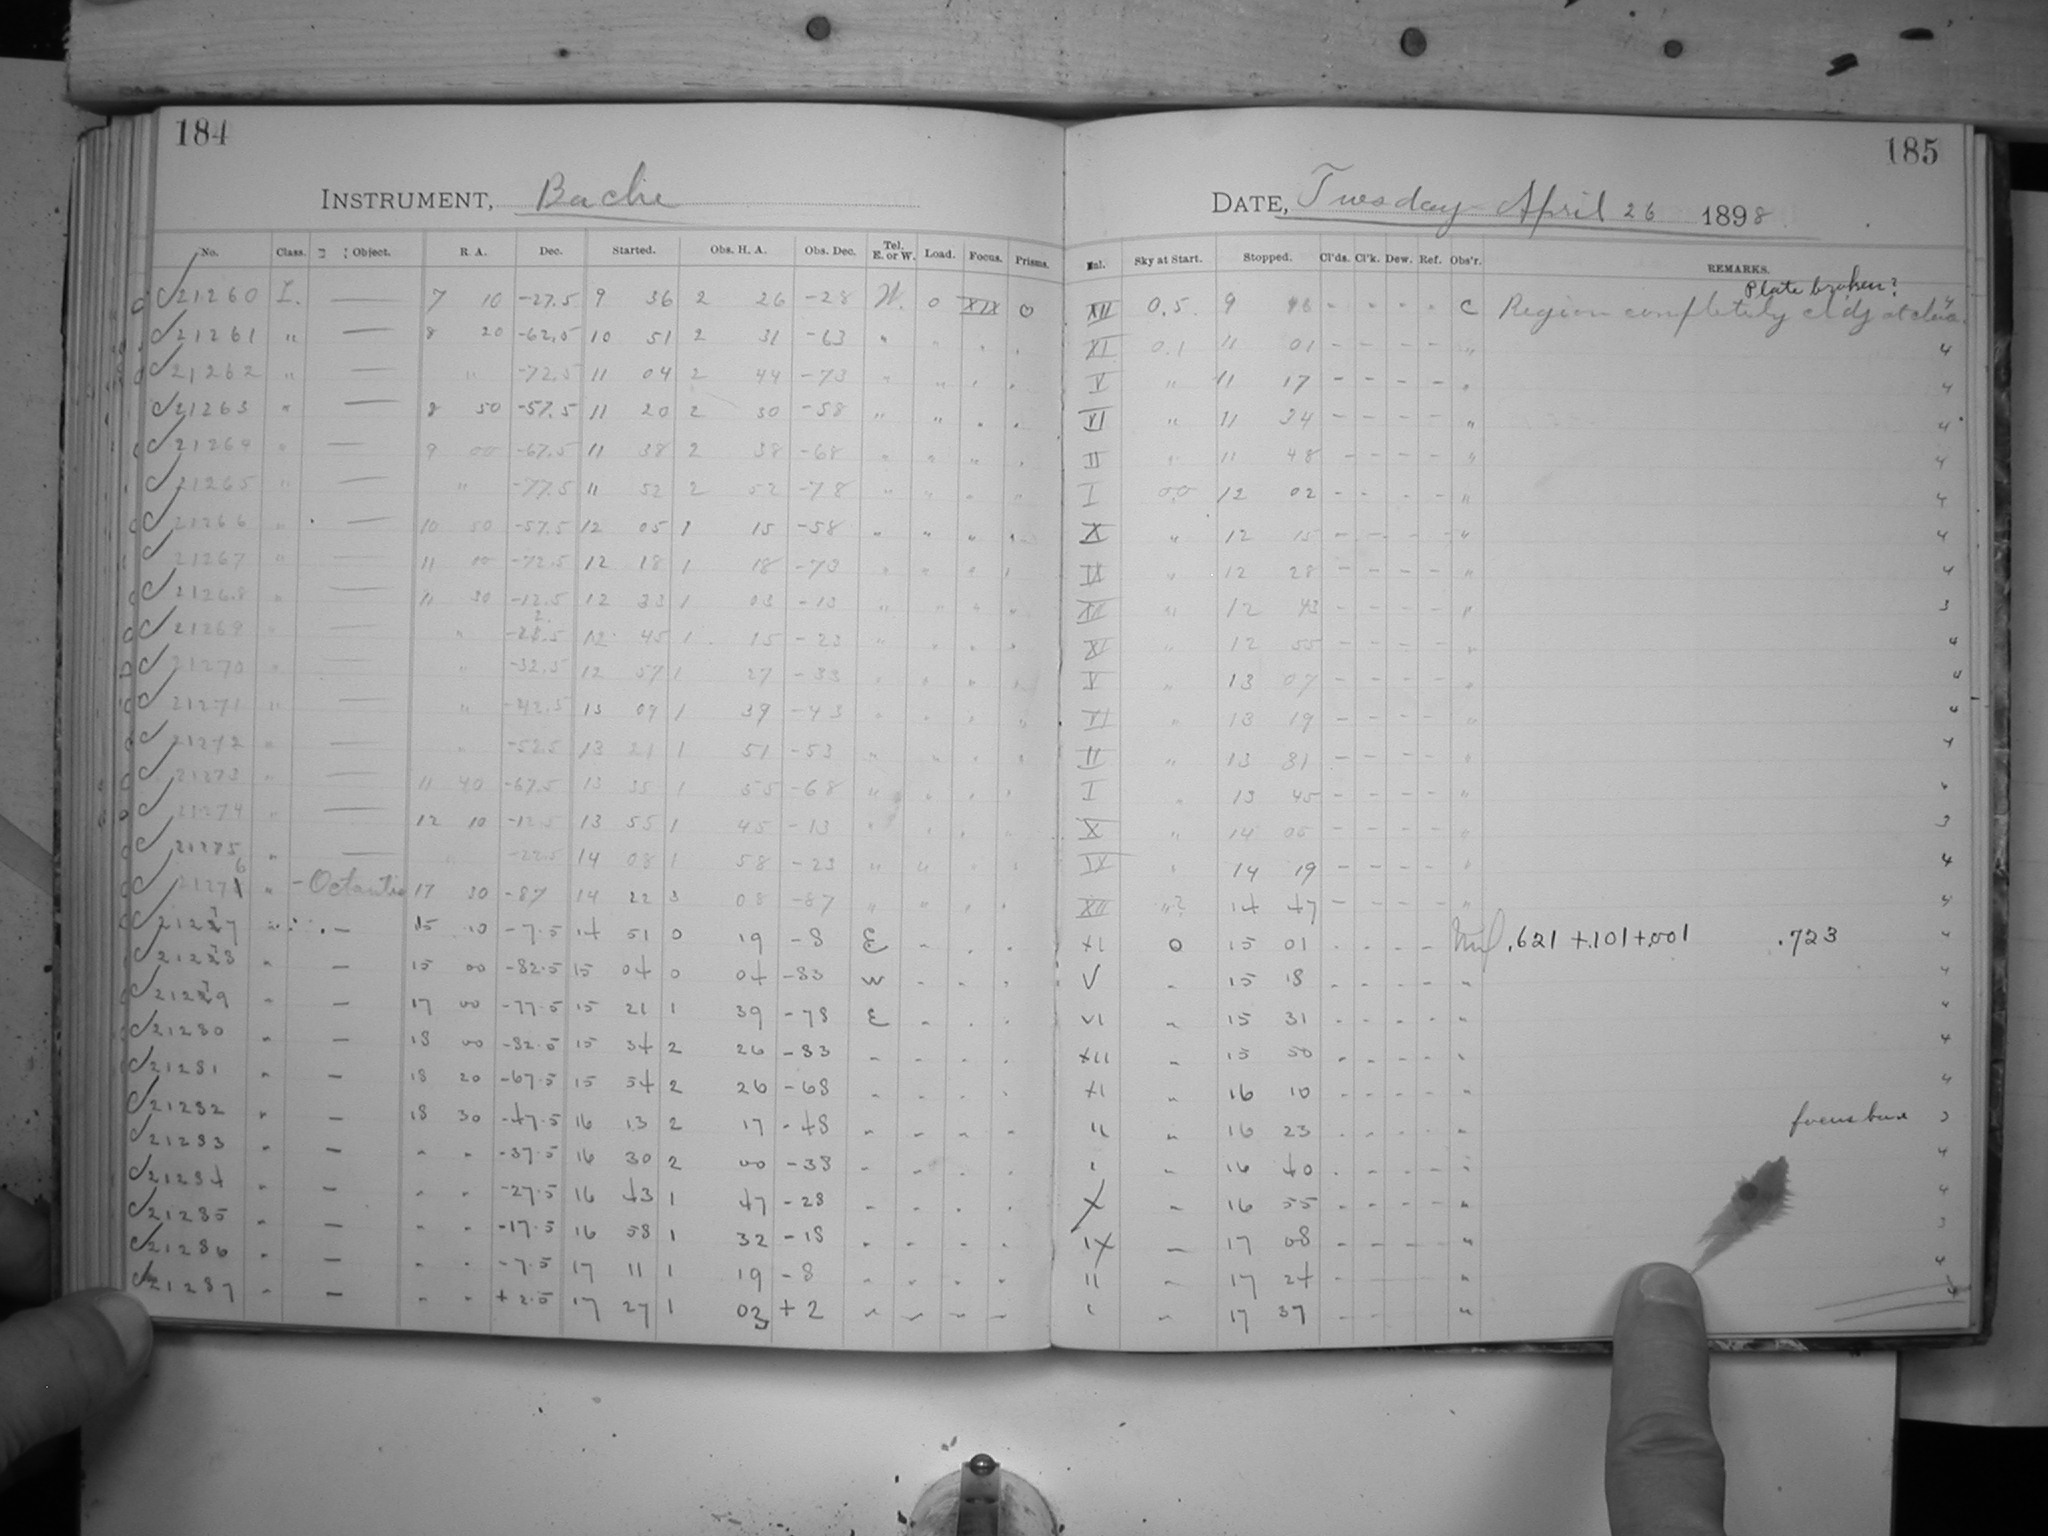 184
185
INSTRUMENT, Bache
DATE, Tuesday April 26 1898
No. Class. Object. R. A. Dec. Started. Obs. H. A. Obs. Dec. Tel. E. or W. Load. Focus. Prisms. Sky at Start. Stopped. Cl'ds. Cl'k. Dew. Ref. Obs'r. REMARKS.
Plate broken?
21260 I. — 7 10 -27.5 9 36 2 26 -28 W. 0 XIX 0 XII 0.5 9 46 - - - - C Region completely cl'dy at close. 4
21261 " — 8 20 -62.5 10 51 2 31 -63 " " " " XI 0.1 11 01 - - - - " 4
21262 " — " -72.5 11 04 2 44 -73 " " " " V " 11 17 - - - - " 4
21263 " — 8 50 -57.5 11 20 2 30 -58 " " " " VI " 11 34 - - - - " 4
21264 " — 9 00 -67.5 11 38 2 38 -68 " " " " II " 11 48 - - - - " 4
21265 " — " -77.5 11 52 2 52 -78 " " " " I 0.0 12 02 - - - - " 4
21266 " — 10 50 -57.5 12 05 1 15 -58 " " " " X " 12 15 - - - - " 4
21267 " — 11 00 -72.5 12 18 1 18 -73 " " " " IX " 12 28 - - - - " 4
21268 " — 11 30 -12.5 12 33 1 03 -13 " " " " XII " 12 43 - - - - " 3
21269 " — " -22.5 12 45 1 15 -23 " " " " XI " 12 55 - - - - " 4
21270 " — " -32.5 12 57 1 27 -33 " " " " V " 13 07 - - - - " 4
21271 " — " -42.5 13 09 1 39 -43 " " " " VI " 13 19 - - - - " 4
21272 " — " -52.5 13 21 1 51 -53 " " " " II " 13 31 - - - - " 4
21273 " — 11 40 -67.5 13 35 1 55 -68 " " " " I " 13 45 - - - - "
21274 " — 12 10 -12.5 13 55 1 45 -13 " " " " X " 14 05 - - - - " 3
21275 " — " -22.5 14 08 1 58 -23 " " " " IX " 14 19 - - - - " 4
21276 " - Octantis 17 30 -87 14 22 3 08 -87 " " " " XII "? 14 47 - - - - " 4
21277 " — 15 10 -7.5 14 51 0 19 -8 E " " " XI 0 15 01 - - - - .621 +.101+.001 .723 4
21278 " — 15 00 -82.5 15 04 0 04 -83 W " " " V " 15 18 - - - - " 4
21279 " — 17 00 -77.5 15 21 1 39 -78 E " " " VI " 15 31 - - - - " 4
21280 " — 18 00 -82.5 15 34 2 26 -83 " " " " XII " 15 50 - - - - " 4
21281 " — 18 20 -67.5 15 54 2 26 -68 " " " " XI " 16 10 - - - - " 4
21282 " — 18 30 -47.5 16 13 2 17 -48 " " " " II " 16 23 - - - - " focus bad 3
21283 " — " " -37.5 16 30 2 00 -38 " " " " I " 16 40 - - - - " 4
21284 " — " " -27.5 16 43 1 47 -28 " " " " X " 16 55 - - - - " 4
21285 " — " " -17.5 16 58 1 32 -18 " " " " IX " 17 08 - - - - " 3
21286 " — " " -7.5 17 11 1 19 -8 " " " " II " 17 24 - - - - " 4
21287 " — " " +2.5 17 27 1 03 +2 " " " " I " 17 37 - - " 4